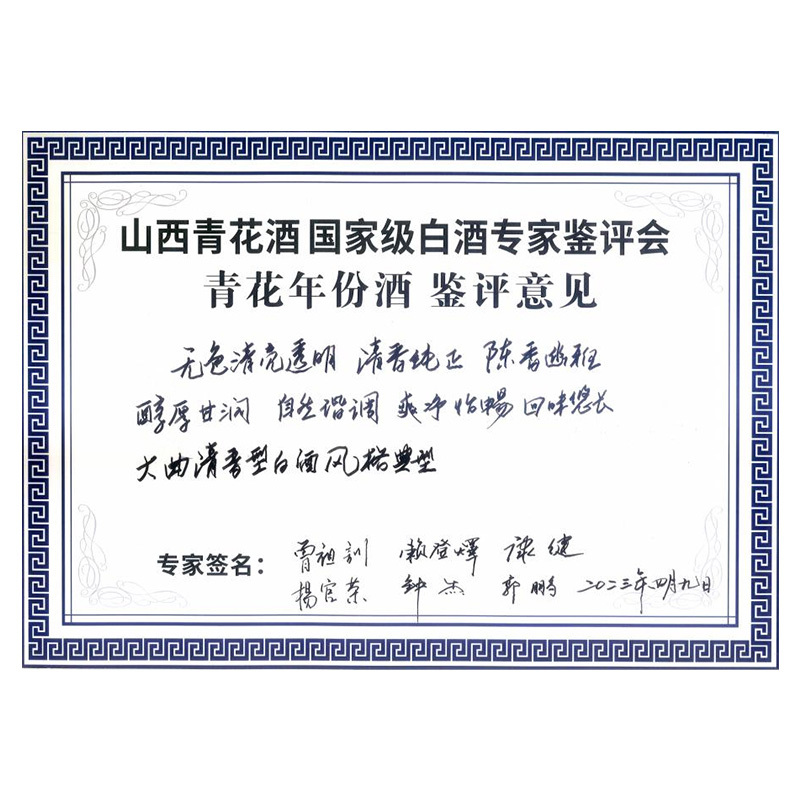 山西青花酒 国家级白酒专家鉴评会
青花年份酒 鉴评意见
无色清亮透明 清香纯正 陈香幽雅
醇厚甘润 自然谐调 爽净怡畅 回味悠长
大曲清香型白酒风格典型
专家签名： 曾祖训 赖登燡 康健
杨官荣 钟杰 郭鹏 二〇二三年四月九日